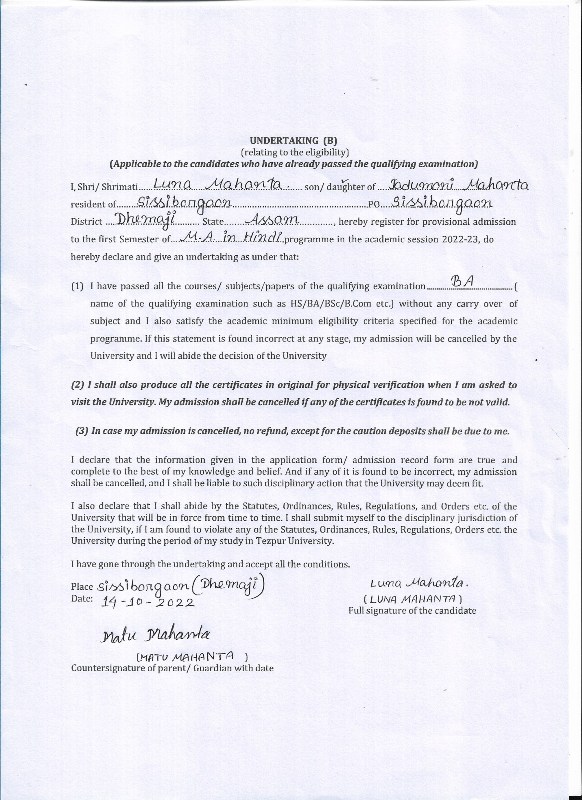 UNDERTAKING (B)
(relating to the eligibility)
(Applicable to the candidates who have already passed the qualifying examination)
I, Shri/ Shrimati.....Luna Mahanta..... son/ daughter of ....Jadumoni Mahanta
resident of.....Sissiborgaon.....PO....Sissiborgaon
District ....Dhemaji.......... State........Assam............., hereby register for provisional admission
to the first Semester of....M.A in Hindi.programme in the academic session 2022-23, do
hereby declare and give an undertaking as under that:
(1) I have passed all the courses/ subjects/papers of the qualifying examination.....BA..... [
name of the qualifying examination such as HS/BA/BSc/B.Com etc.] without any carry over of
subject and I also satisfy the academic minimum eligibility criteria specified for the academic
programme. If this statement is found incorrect at any stage, my admission will be cancelled by the
University and I will abide the decision of the University
(2) I shall also produce all the certificates in original for physical verification when I am asked to
visit the University. My admission shall be cancelled if any of the certificates is found to be not valid.
(3) In case my admission is cancelled, no refund, except for the caution deposits shall be due to me.
I declare that the information given in the application form/ admission record form are true and
complete to the best of my knowledge and belief. And if any of it is found to be incorrect, my admission
shall be cancelled, and I shall be liable to such disciplinary action that the University may deem fit.
I also declare that I shall abide by the Statutes, Ordinances, Rules, Regulations, and Orders etc. of the
University that will be in force from time to time. I shall submit myself to the disciplinary jurisdiction of
the University, if I am found to violate any of the Statutes, Ordinances, Rules, Regulations, Orders etc. the
University during the period of my study in Tezpur University.
I have gone through the undertaking and accept all the conditions.
Place Sissiborgaon (Dhemaji)
Date: 14-10-2022
Luna Mahanta.
(LUNA MAHANTA)
Full signature of the candidate
Matu Mahanta
(MATU MAHANTA )
Countersignature of parent/ Guardian with date